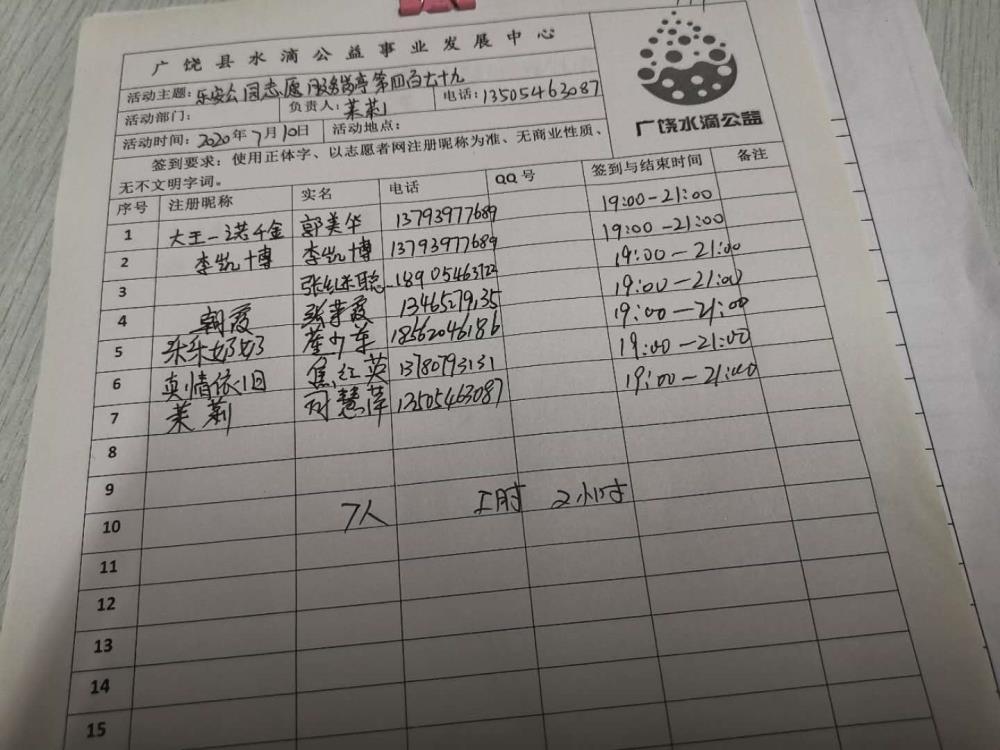 广饶县水滴公益事业发展中心
活动主题：乐安公园志愿服务岗亭第四百七十九
活动部门： 负责人：茉莉 电话：13505463087
活动时间：2020年7月10日 活动地点：
广饶水滴公益
签到要求：使用正体字、以志愿者网注册昵称为准、无商业性质、
无不文明字词。
序号 注册昵称 实名 电话 QQ号 签到与结束时间 备注
1 大王一诺千金 郭美华 13793977689 19:00-21:00
2 李凯博 李凯博 13793977689 19:00-21:00
3 张继聪 18905463122 19:00-21:00
4 朝霞 张芽霞 13465279135 19:00-21:00
5 乐乐奶奶 崔少华 18562046186 19:00-21:00
6 真情依旧 焦红英 13780793131 19:00-21:00
7 茉莉 慧萍 13505463087 19:00-21:00
8
9
10 7人 工时 2小时
11
12
13
14
15